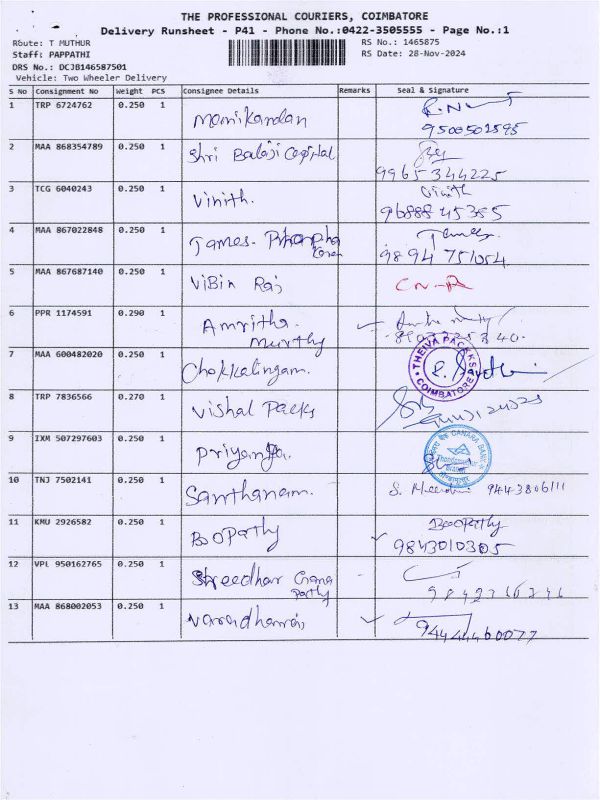 THE PROFESSIONAL COURIERS, COIMBATORE
Delivery Runsheet - P41 - Phone No.:0422-3505555 - Page No.:1
Route: T MUTHUR
RS No.: 1465875
Staff: PAPPATHI
RS Date: 28-Nov-2024
DRS No.: DCJB146587501
Vehicle: Two Wheeler Delivery
S No Consignment No Weight PCS Consignee Details Remarks Seal & Signature
1 TRP 6724762 0.250 1 Manikandan
9500501595
2 MAA 868354789 0.250 1 Shri Balaji Capital
9965344225
3 TCG 6040243 0.250 1 Vinith. Vinith
9688845355
4 MAA 867022848 0.250 1 James.
9894751054
5 MAA 867687140 0.250 1 ViBin Raj
6 PPR 1174591 0.290 1 Amritha.
Murthy
7 MAA 600482020 0.250 1 Chokkalingam. THEIVA PACKS COIMBATORE
8 TRP 7836566 0.270 1 Vishal Packs
9 IXM 507297603 0.250 1 Priyanga. CANARA BANK
10 TNJ 7502141 0.250 1 Santhanam. 9443806111
11 KMU 2926582 0.250 1 BooPathy BooPathy
9843010305
12 VPL 950162765 0.250 1 Shreedhar
13 MAA 868002053 0.250 1 Varadharaj